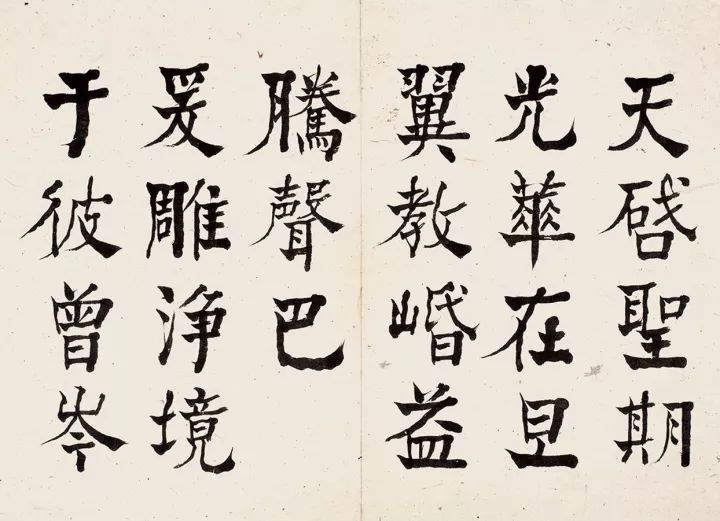 天啓聖期
光華在旦
翼教㟭益
騰聲巴
爰雕淨境
于彼曾岑